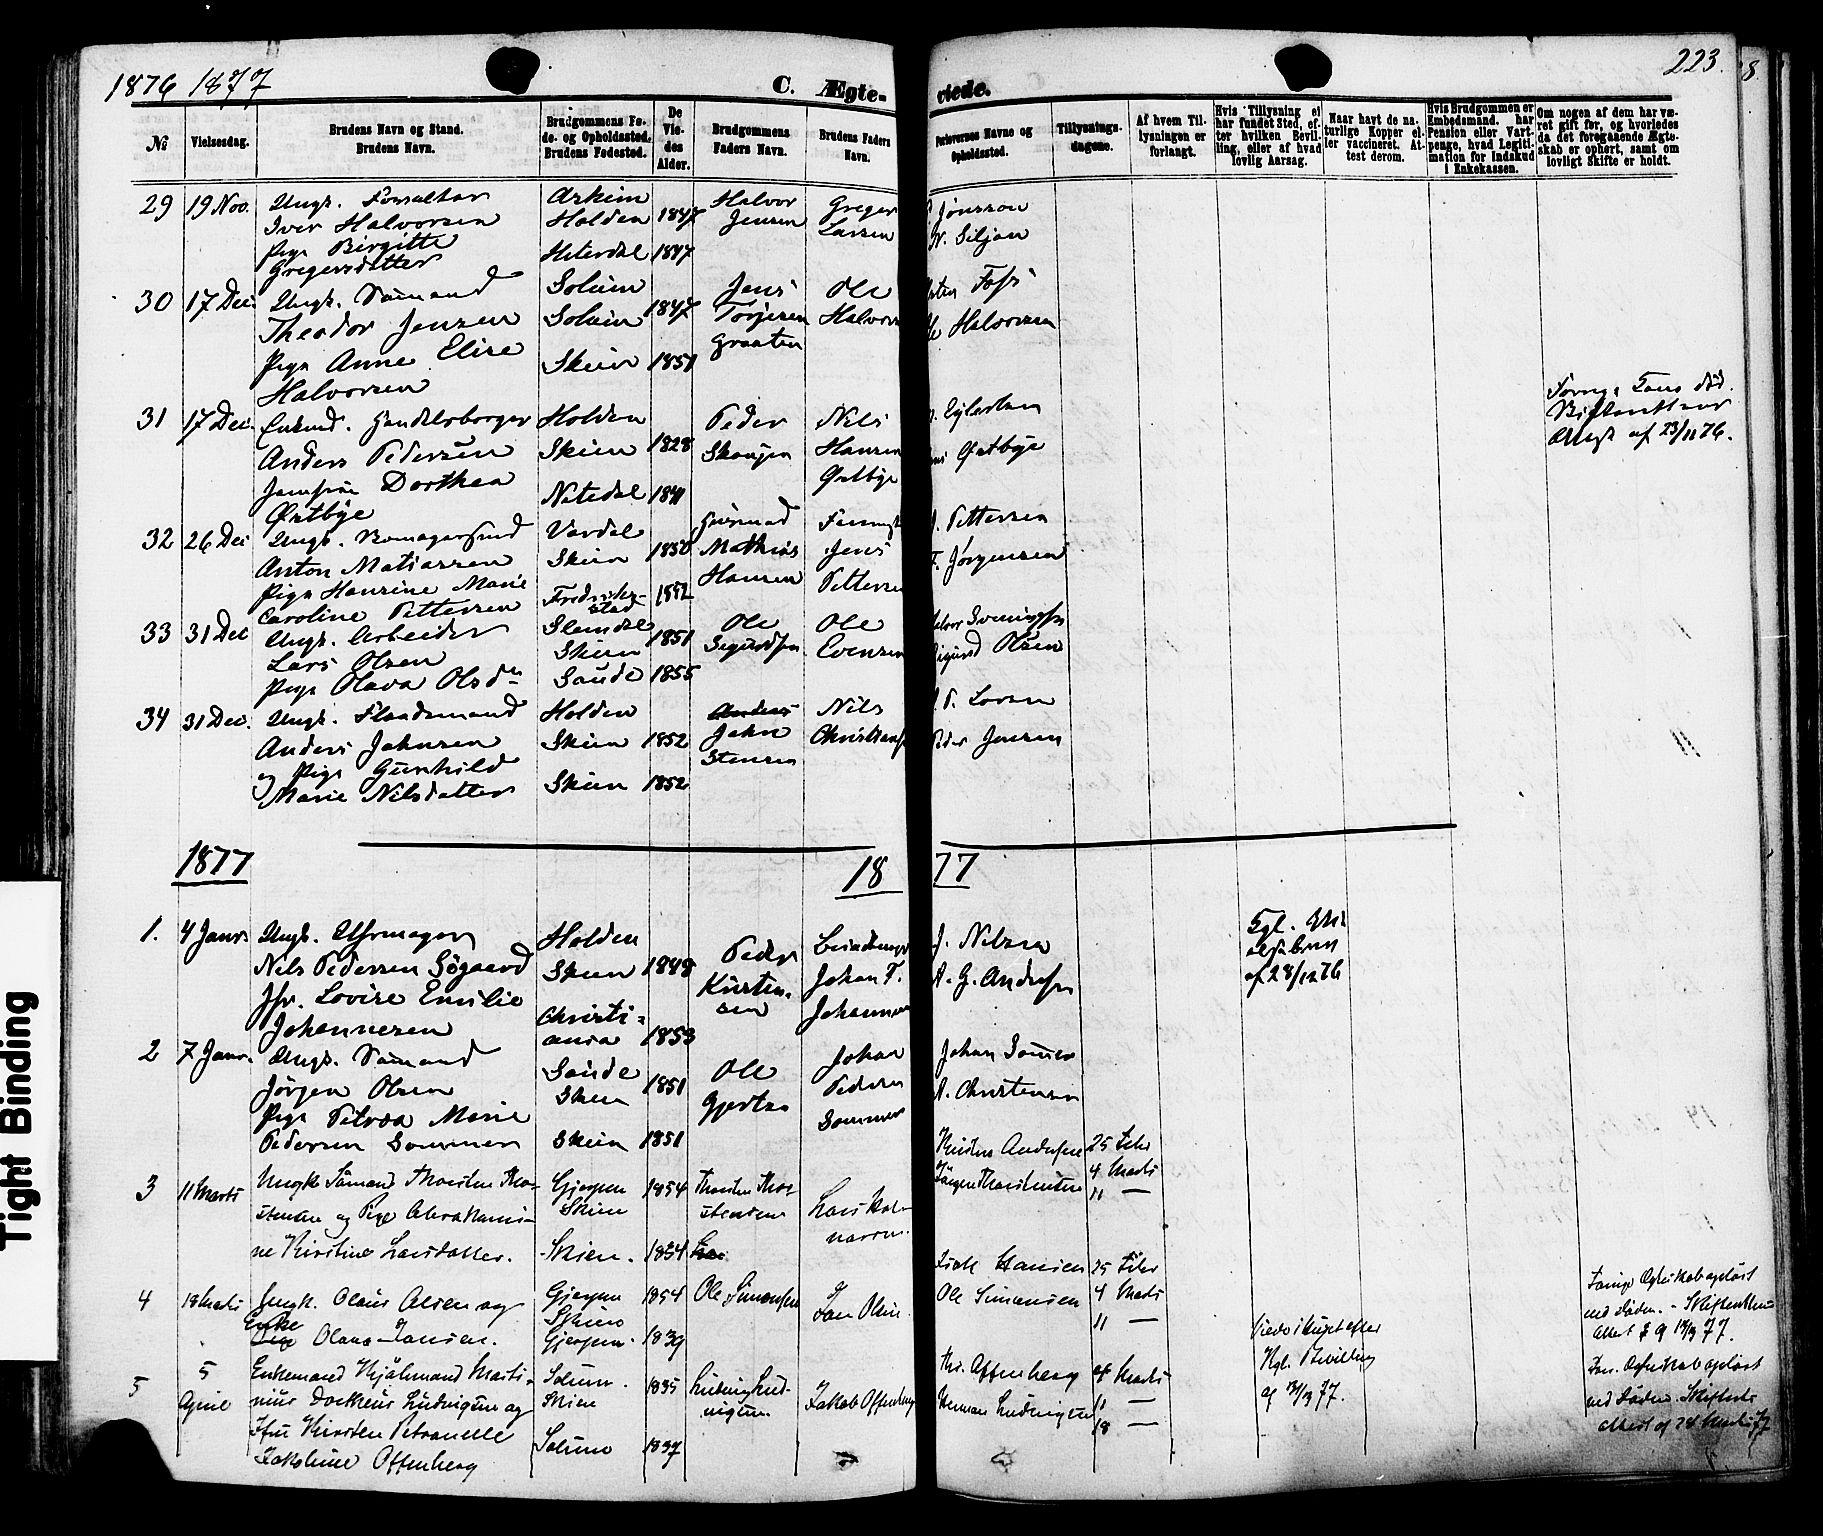 1876 1877
C. Ægte-
viede.
223.
8.
№
Vielsesdag.
Brudens Navn og Stand.
Brudens Navn.
Brudgommens Fø-
de- og Opholdssted.
Brudens Fødested.
De
Vie-
des
Alder.
Brudgommens
Faders Navn.
Brudens Faders
Navn.
Forlovernes Navne og
Opholdssted.
Tillysnings-
dagene.
Af hvem Til-
lysningen er
forlangt.
Hvis Tillysning ei
har fundet Sted, ef-
ter hvilken Bevil-
ling, eller af hvad
lovlig Aarsag.
Naar havt de na-
turlige Kopper el-
ler vaccineret. At-
test derom.
Hvis Brudgommen er
Embedsmand, har
Pension eller Vart-
penge, hvad Legiti-
mation for Indskud
i Enkekassen.
Om nogen af dem har væ-
ret gift før, og hvorledes
da det foregaaende Ægte-
skab er ophørt, samt om
lovligt Skifte er holdt.
29 19 Nov. Ungk. Forvalter
Iver Halvorsen
Pige Birgitte
Gregersdatter
Holden 1847
Hiterdal 1847
Halvor
Jensen
Greger
Larsen
Jønsson
Siljan
30 17 Dec. Ungk. Sømand
Theodor Jensen
Pige Anne Elise
Halvorsen
Solum
Solum 1847
Skien 1851
Jens
Torjesen
Graaten
Ole
Halvors
Foss
Halvorsen
31 17 Dec. Enkmd. Handelsborger
Anders Pedersen
Jomfru Dorthea
Østbye
Holden
Skien 1828
Nitedal 1841
Peder
Skaugen
Nils
Hansen
Østbye
Østbye
af 23/11 76.
32 26 Dec Ungk.
Anton Matiassen
Pige Hansine Marie
Caroline Pettersen
Vardal
Skien 1850
Fredrik-
stad
Mathias
Hansen
Jens
Pettersen
Pettersen
F. Jørgensen
33 31 Dec Ungk. Arbeider
Lars Olsen
Pige Olava Olsd
Slemdal
Skien 1851
Saude 1855
Ole
Sigurdsen
Ole
Evensen
Sigurd Olsen
34 31 Dec. Ungk. Plandsmand
Anders Johnsen
og Pige Gunhild
Marie Nilsdatter
Holden
Skien 1852
Skien 1852
Anders
John
Stensen
Nils
Christians
P. Larsen
Peder Jensen
1877
18 77
1. 4 Janr. Ungk. Uhrmager
Nils Pedersen Søgaard
Jfr. Lovise Emilie
Johannesen
Holden
Skien 1848
Christi-
ania 1853
Peder
Kirsten-
sen
Johan F.
Johannes
J. Nilsen
A. G. Andersen
Kgl.
af 28/12 76
2 7 Janr. Ungk. Sømand
Jørgen Olsen
Pige Petrea Marie
Pedersen Sommer
Saude
Skien 1851
Skien 1851
Ole
Gjertsen
Johan
Pedersen
Sommer
Johan Sommer
A. Christensen
3 11 Marts Ungk. Sømand Thorsten Tho-
stensen og Pige Abrahami-
ne Kirstine Larsdatter.
Gjerpen 1854
Skien
Skien. 1854
Thorsten Thor-
stensen
Lars Hal-
varsen.
Kristen Andersen
Jørgen Thorstensen
25 Febr
4 Marts
11 —
4 18 Marts Ungk. Olaus Olsen og
Enke
Pige Olava Jansen.
Gjerpen 1854
Skien
Gjerpen. 1839
Ole Simonsen
Jan Olsen.
Isak Hansen
Ole Simonsen
25 Febr
4 Marts
11 —
Viede i Huset efter
Forrige Ægteskab opløst
ved Døden. - Skifteretten
Attest af 14/3 77.
5 5
April
Enkemand Hjalmand Marti-
nius Ludvigsen og
Jfru Kirsten Petronelle
Jakobine Offenberg
Solum. 1835
Skien
Solum 1837
Ludvig Lud-
vigsen.
Jakob Offenberg
Offenberg
Herman Ludvigsen
4 Marts
11 —
18 —
Kgl. Bevilling
af 14/3 77.
For. Ægteskab opløst
ved Døden. Skifterets
attest af 28 Marts 77
Tight Binding